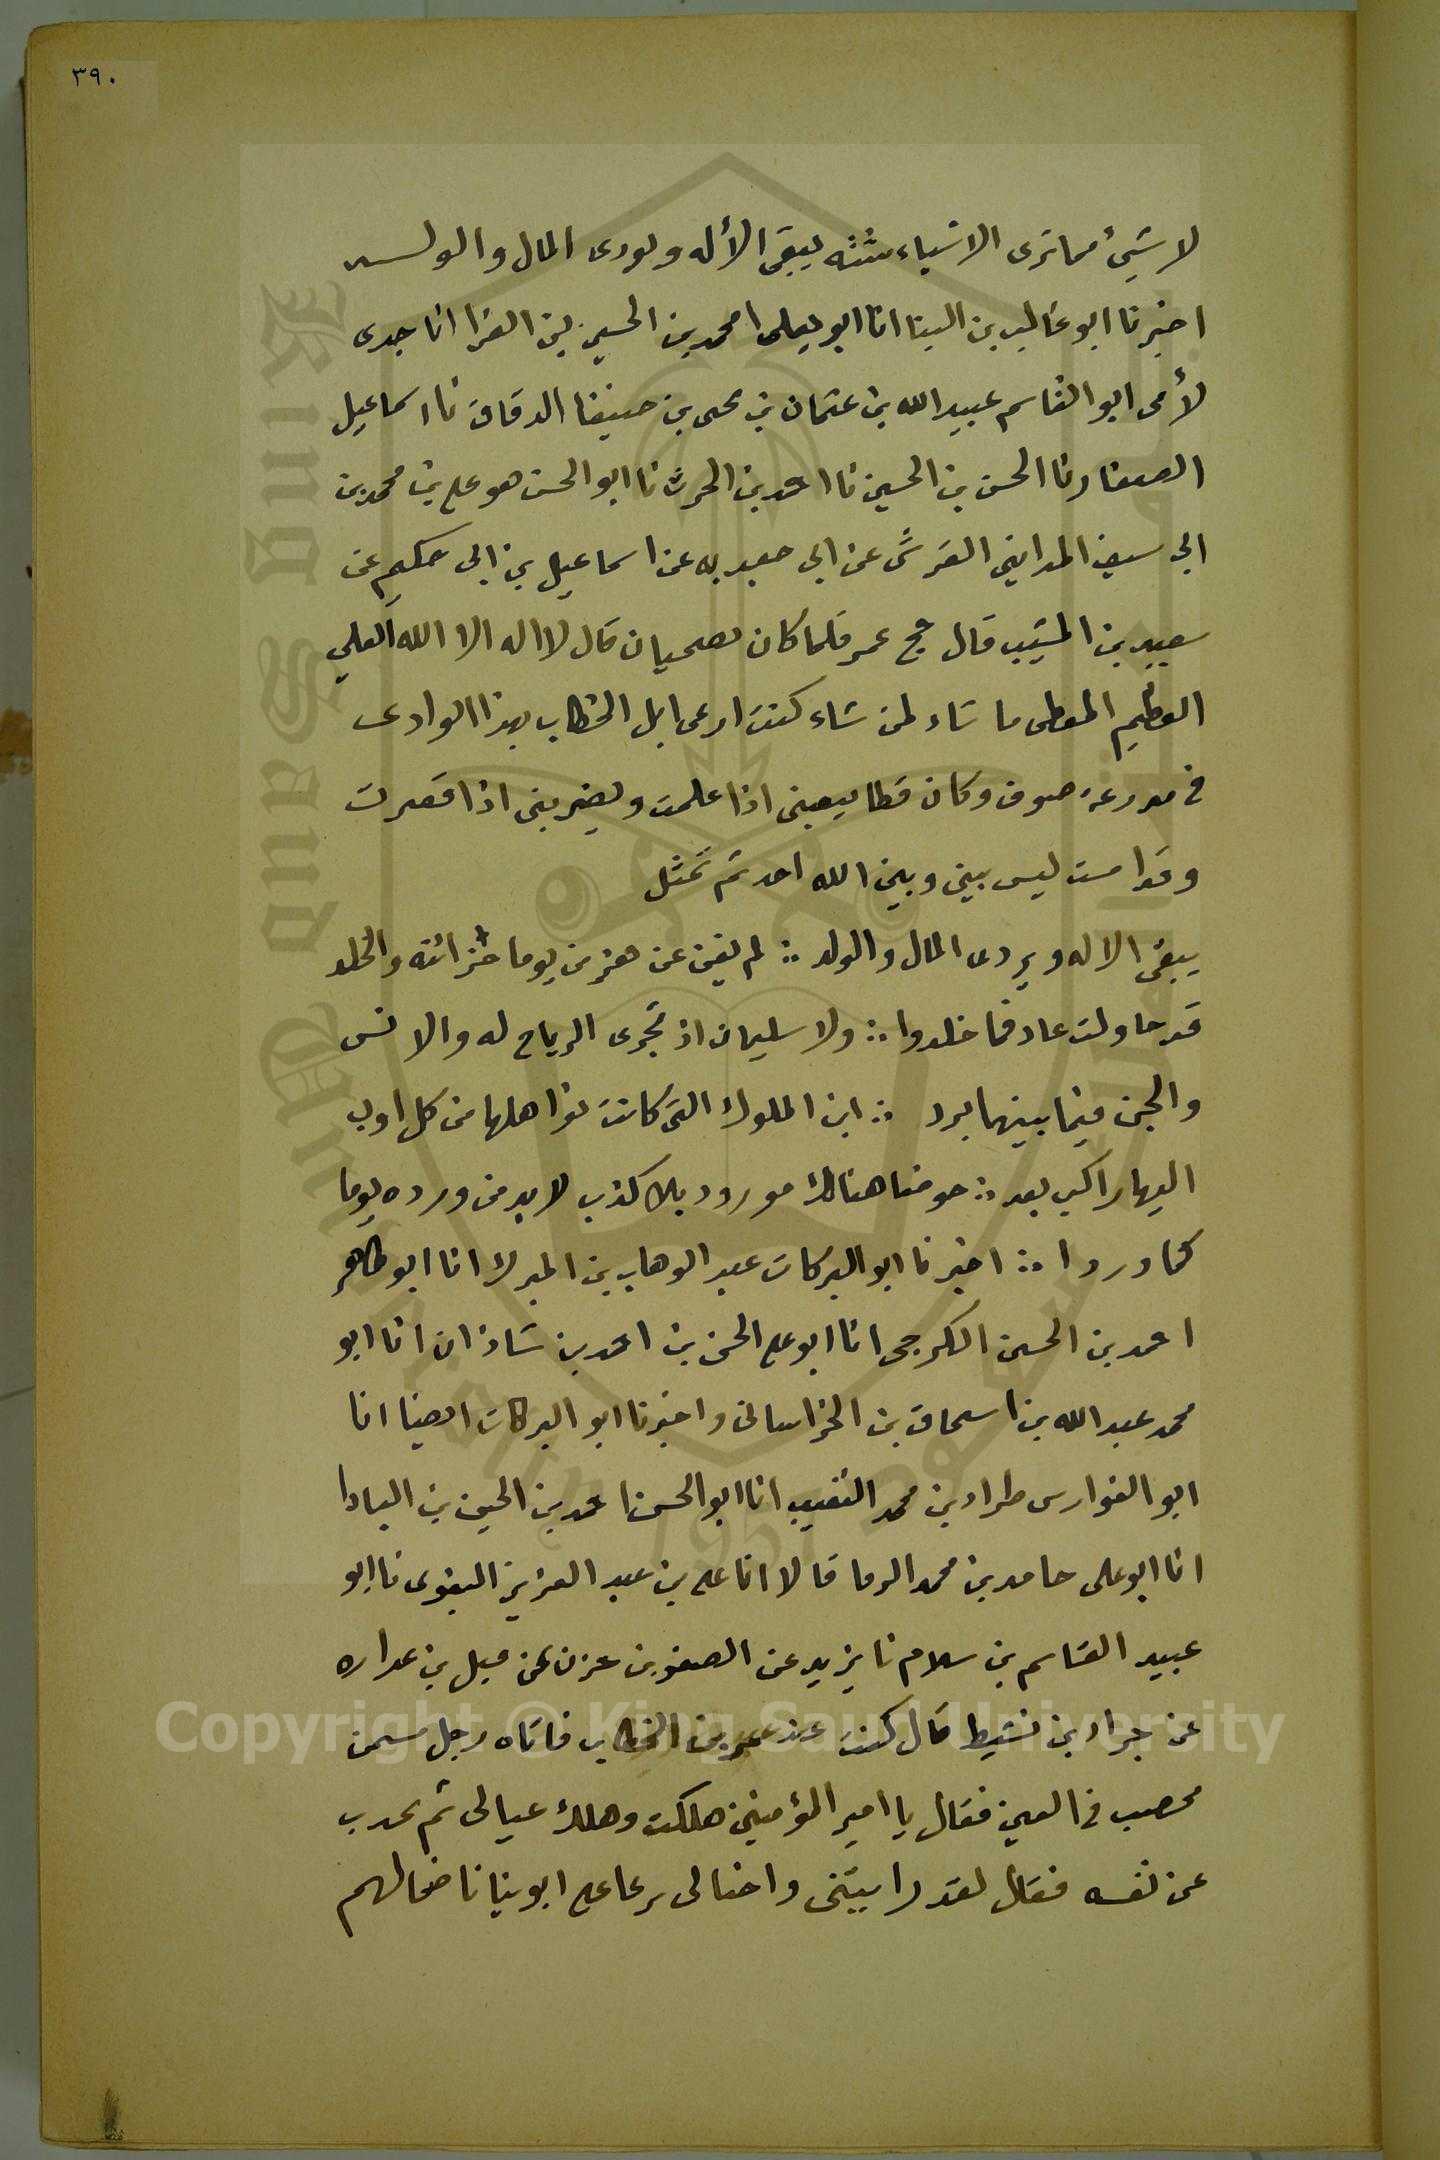 ٣٩٠
لا شيء مما ترى الاشياء يبقى الأله ويودى المال والولد
اخبرنا ابو غالب بن البنا انا ابو يعلى محمد بن الحسين بن الفرا انا جدى
لأمى ابو القاسم عبيد الله بن عثمان بن يحى بن حنيفا الدقاق نا اسماعيل
الصفار نا الحسن بن الحسين نا احمد بن الحرث نا ابو الحسن هو على بن محمد بن
ابى سيف المداينى القرشى عن ابى عن اسماعيل بن ابى حكيم عن
سعيد بن المسيب قال حج عمر فلما كان بضحيان قال لا اله الا الله العلي
العظيم المعطى ما شاء لمن شاء كنت ارعى ابل الخطاب بهذا الوادى
فى مدرعة صوف وكان فظا يتعبنى اذا علمت ويضربنى اذا قصرت
وقد امست ليس بينى وبين الله احد ثم تمثل
يبقى الاله ويردى المال والولد ∴ لم يغن عن هزمن يوما خزائنه والخلد
قد حاولت عاد فما خلدوا ∴ ولا سليمان اذ تجرى الرياح له والانس
والجن فيما بينها برد ∴ اين الملوك التى كانت نواهلها من كل اوب
اليها راكب يفد ∴ حوضا هنالك مورود بلا كذب لا بد من ورده يوما
كما وردوا ∴ اخبرنا ابو البركات عبد الوهاب بن المبرك انا ابو طاهر
احمد بن الحسن الكرجى انا ابو على الحسن بن احمد بن شاذان انا ابو
محمد عبد الله بن اسحاق بن الخراسانى واخبرنا ابو البركات ايضا انا
ابو الفوارس طراد بن محمد النقيب انا ابو الحسن احمد بن الحسين بن البادا
انا ابو على حامد بن محمد الرفا قالا انا على بن عبد العزيز البغوى نا ابو
عبيد القاسم بن سلام نا يزيد عن الصعق بن حزن عن فيل بن عراده
عن جراد بن نشيط قال كنت عند عمر بن الخطاب فاتاه رجل مسمن
مخصب فى العين فقال يا امير المؤمنين هلكت وهلك عيالى ثم يحدث
عن نفسه فقال لقد رايتنى واختا لى نرعا على ابوينا ناضحا لهم
Copyright © King Saud University
King Saud University
1957